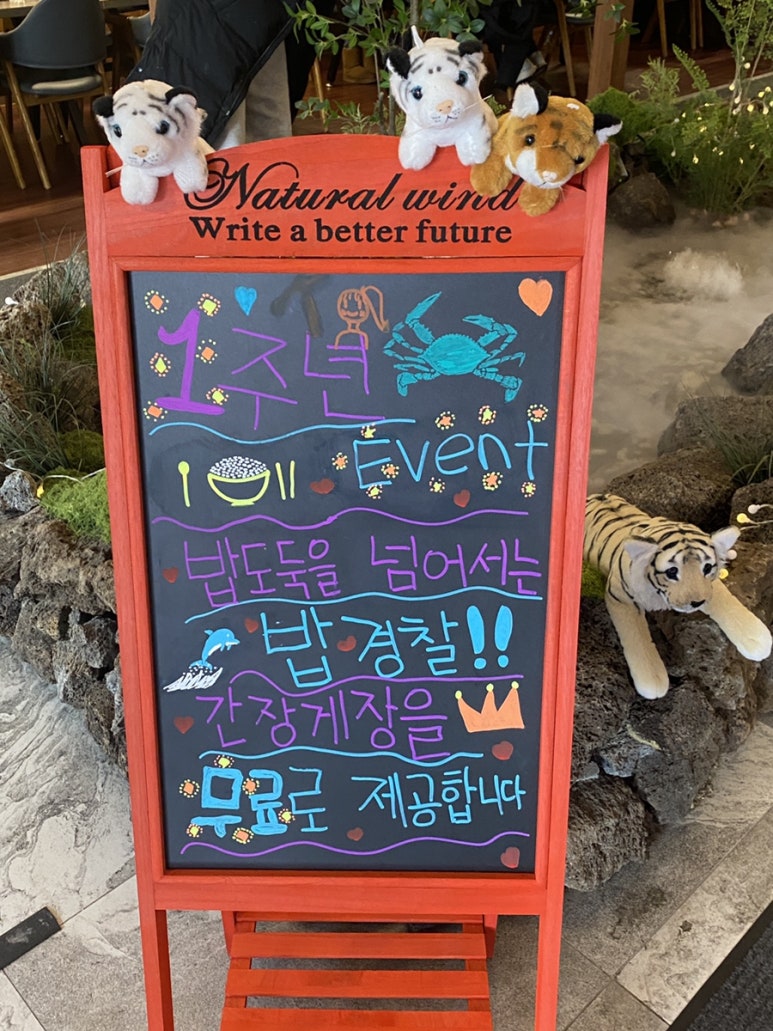 Natural wind
Write a better future
1주년
Event
밥도둑을 넘어서는
밥경찰!!
간장게장을
무료로 제공합니다